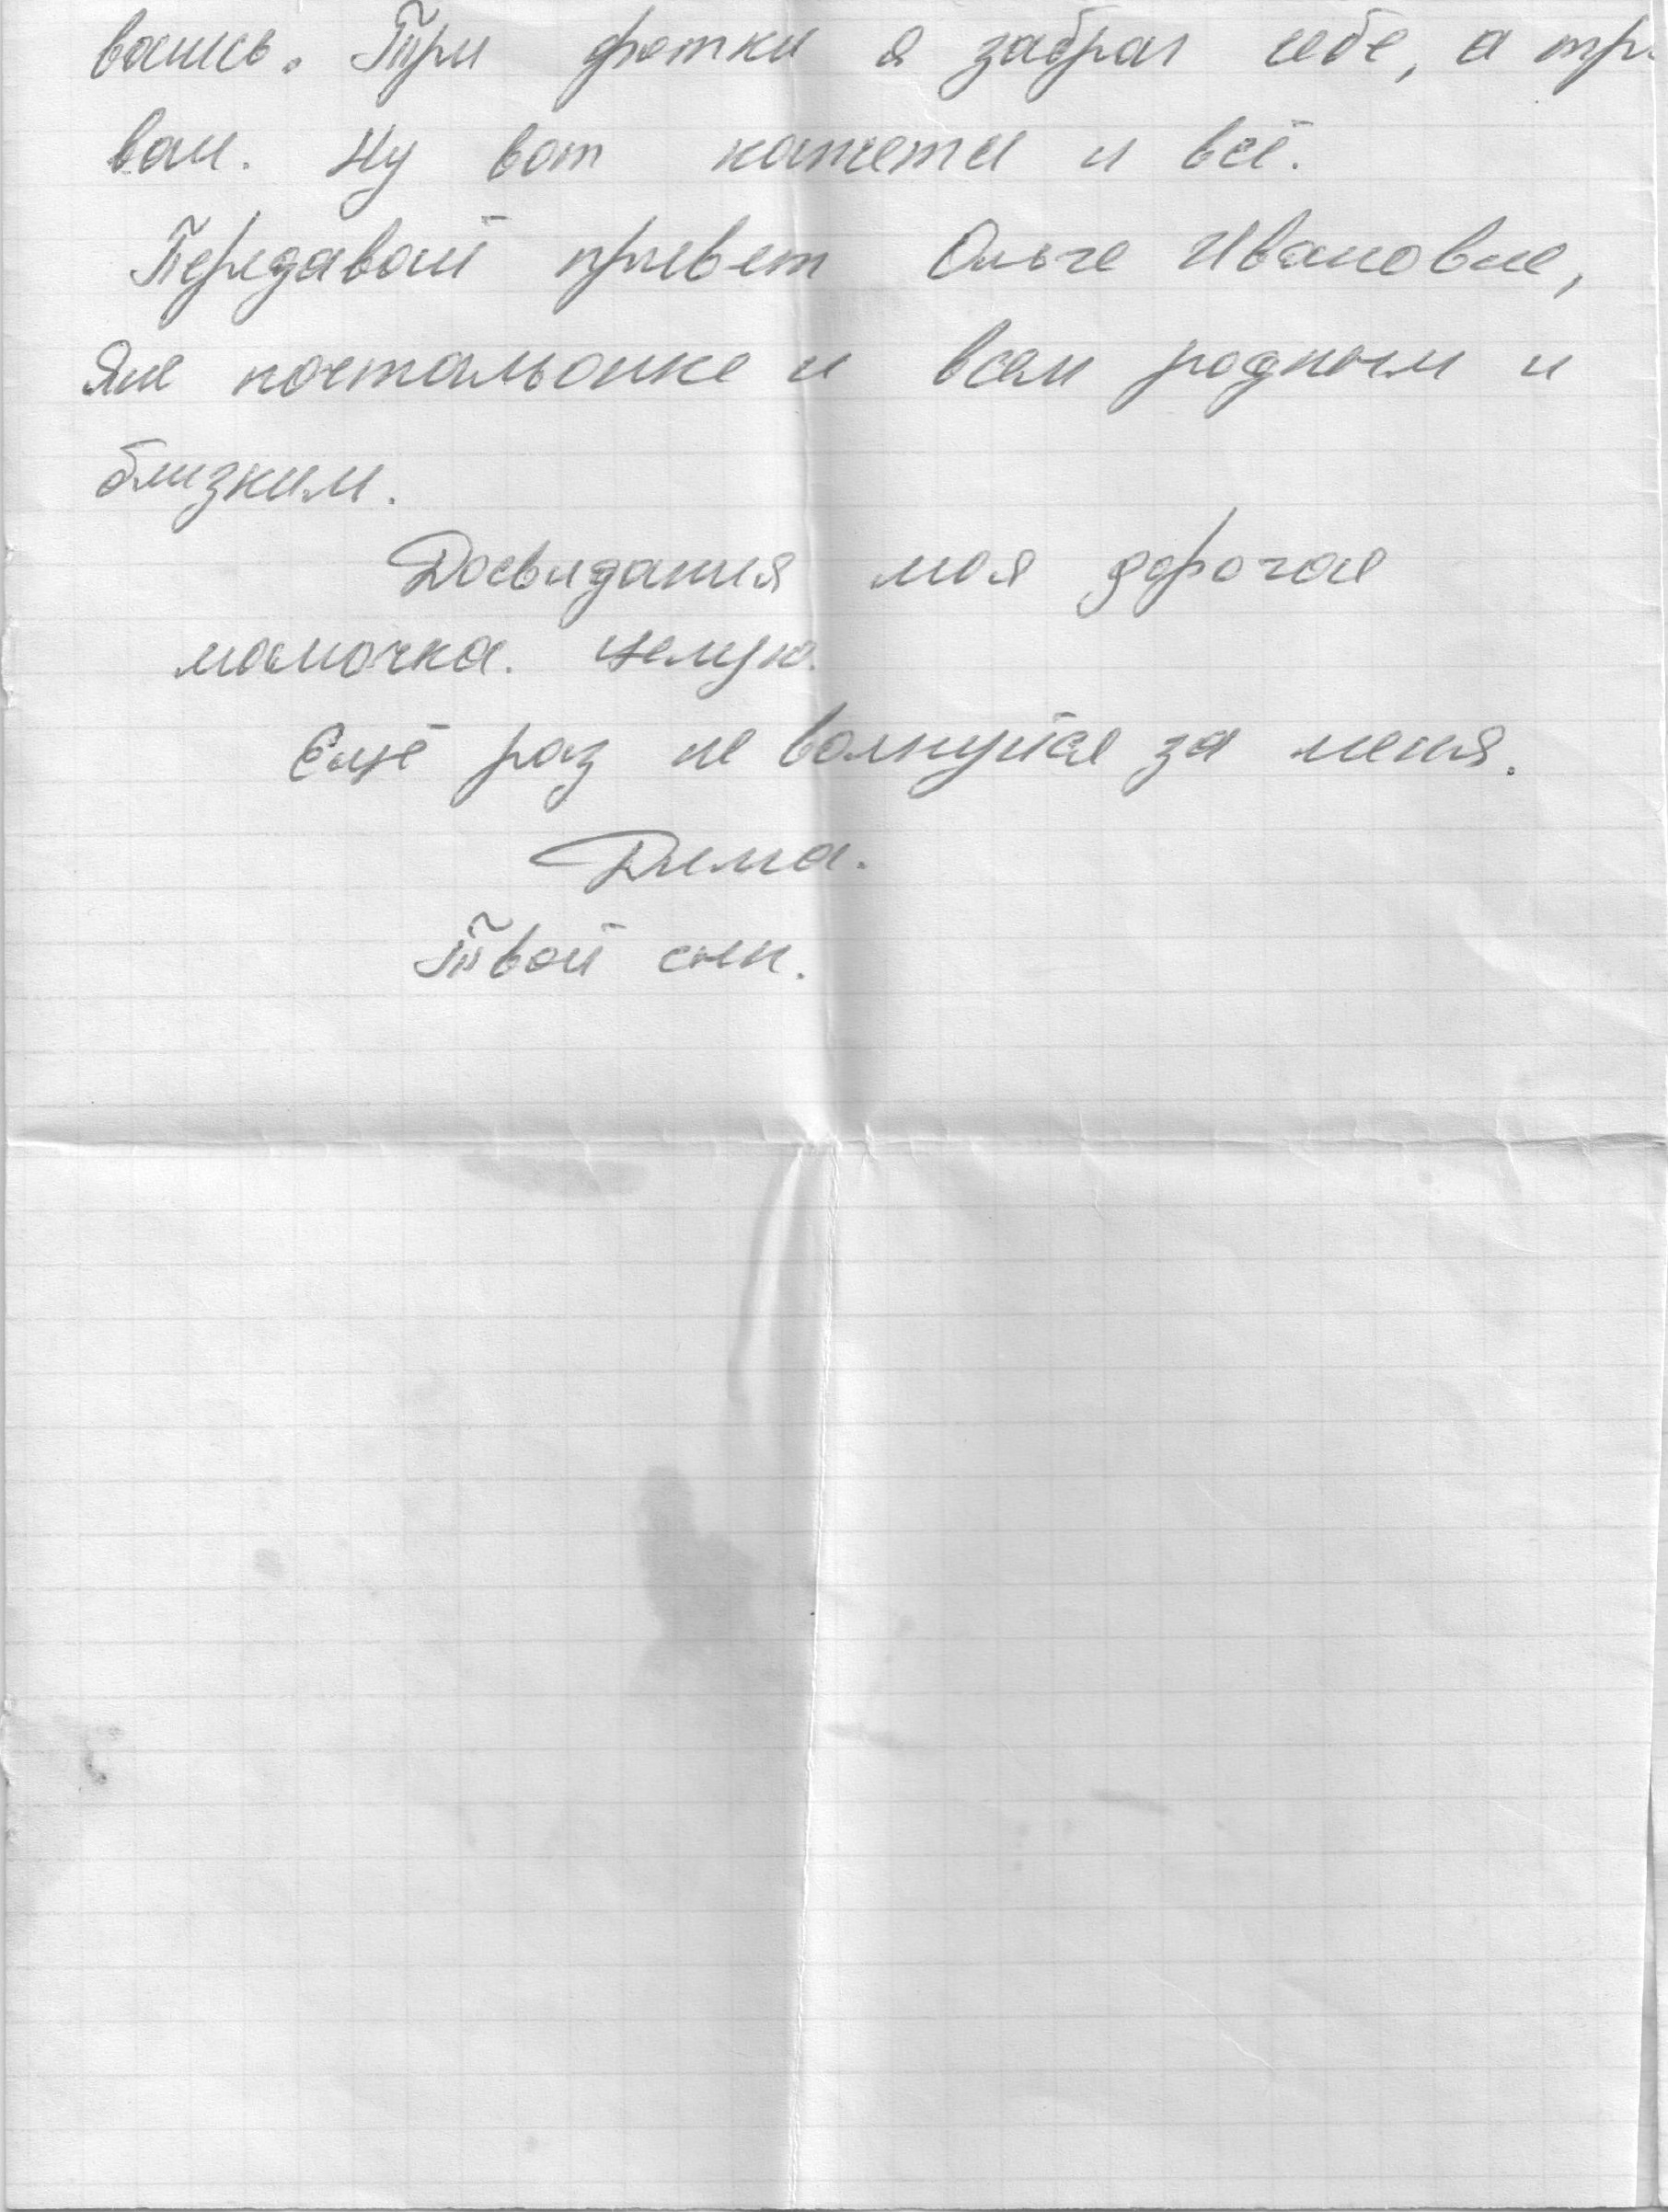 вались. Три фотки я забрал себе, а три
вам. Ну вот кажется и всё.
Передавай привет Ольге Ивановне,
Яне почтальонке и всем родным и
близким.
Досвидания моя дорогая
мамочка. Целую.
Ещё раз не волнуйся за меня.
Дима.
Твой сын.